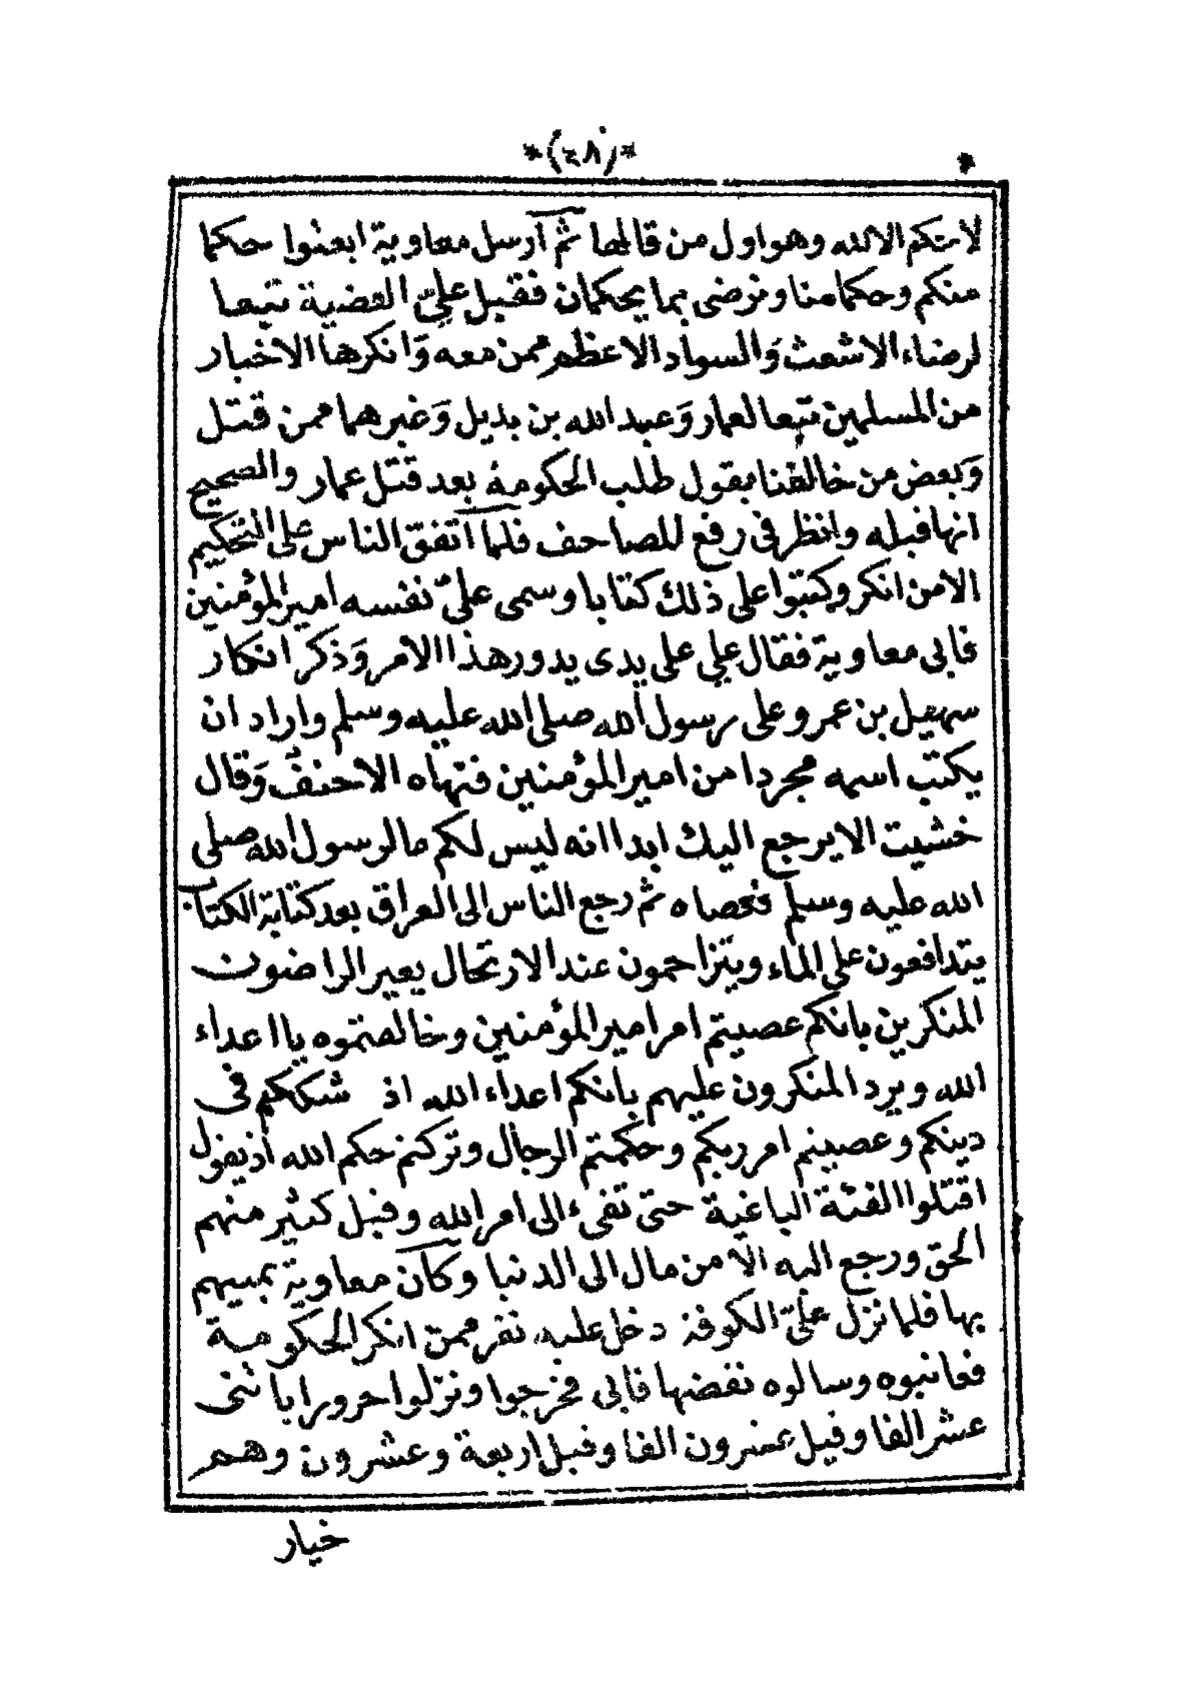 *(٤٨)*
لا حكم الا لله وهو اول من قالها ثم ارسل معاوية ابعثوا حكما
منكم وحكما منا ونرضى بما يحكمان فقبل عليّ القضية تبعا
لرضاء الاشعث وَالسواد الاعظم ممن معه وَانكرها الاخيار
من المسلمين تبعا لعمار وَعبد الله بن بديل وَغيرهما ممن قتل
وَبعض من خالفنا يقول طلب الحكومة بعد قتل عمار والصحيح
انها قبله وانظر فى رفع المصاحف فلما اتفق الناس على التحكيم
الا من انكر وكتبوا على ذلك كتابا وسمى عليّ نفسه امير المؤمنين
فابى معاوية فقال علي على يدى يدور هذا الامر وَذكر انكار
سهيل بن عمرو على رسول الله صلى الله عليه وسلم واراد ان
يكتب اسمه مجردا من امير المؤمنين فنهاه الاحنف وَقال
خشيت الا يرجع اليك ابدا انه ليس لكم ما لرسول الله صلى
الله عليه وسلم فعصاه ثم رجع الناس الى العراق بعد كتابة الكتاب
يتدافعون على الماء ويتزاحمون عند الارتحال يعير الراضون
المنكرين بانكم عصيتم امر امير المؤمنين وخالفتموه يا اعداء
الله ويرد المنكرون عليهم بانكم اعداء الله اذ شككتم فى
دينكم وعصيتم امر ربكم وحكمتم الرجال وتركتم حكم الله اذ يقول
اقتلوا الفئة الباغية حتى تفىء الى امر الله وقبل كثير منهم
الحق ورجع اليه الا من مال الى الدنيا وكان معاوية يمنيهم
بها فلما نزل عليّ الكوفة دخل عليه نفر ممن انكر الحكومة
فعاتبوه وسالوه نقضها فابى فخرجوا ونزلوا حرورا باثنى
عشر الفا وقيل عشرون الفا وقيل اربعة وعشرون وهم
خيار